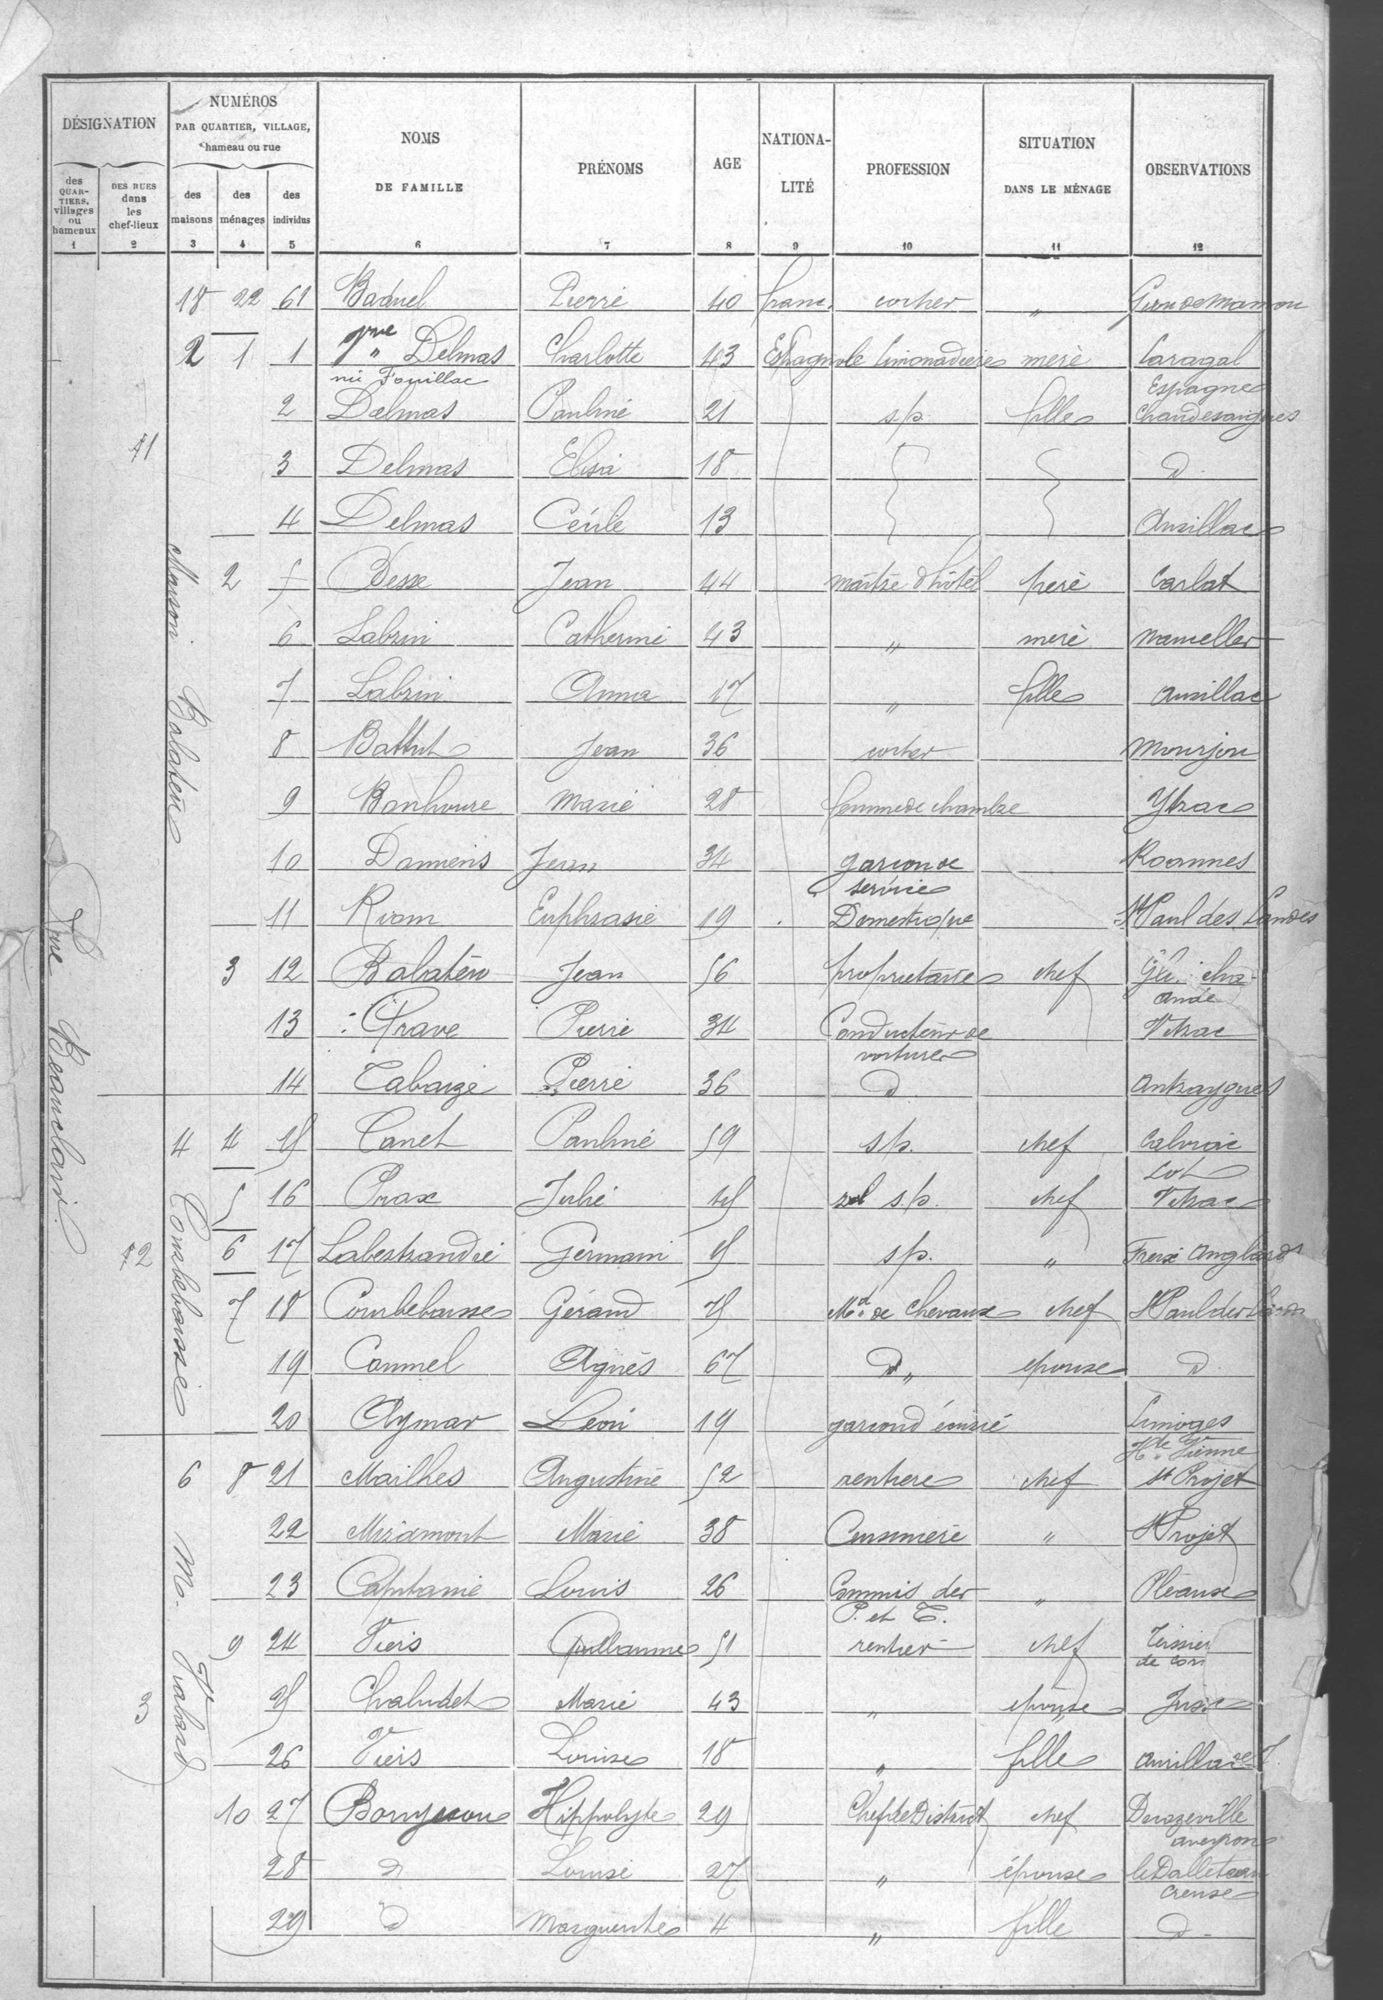 DÉSIGNATION
NUMÉROS
PAR QUARTIER, VILLAGE,
hameau ou rue
NOMS
DE FAMILLE
PRÉNOMS
AGE
NATIONA-
LITÉ
PROFESSION
SITUATION
DANS LE MÉNAGE
OBSERVATIONS
des
QUAR-
TIERS,
villages
ou
hameaux
DES RUES
dans
les
chef-lieux
des
maisons
des
ménages
des
individus
1 2 3 4 5 6 7 8 9 10 11 12
18 22 61 Baduel Pierre 40 franc. cocher "
2 1 1 Vve Delmas Charlotte 43 Espagnole limonadière mère
née Fouillac Espagne
2 Delmas Pauline 21 s/p. fille Chaudesaigues
71
3 Delmas 18 d
4 Delmas Cécile 13 Aurillac
2 5 Besse Jean 44 maître d'hôtel père Carlat
6 Catherine 43 " mère
7 Anna 17 " fille Aurillac
8 Battut Jean 36 cocher Mourjou
9 Bonhoure Marie 28 femme de chambre Ytrac
Maison Balateu
10 Damiens Jean 34 garcon de Roannes
service
11 Riom Euphrasie 19 Domestique St Paul des Landes
3 12 Jean 56 propriétaire chef
13 Prave Pierre 34 Conducteur de Vitrac
voiture
14 Pierre 36 d Antraygues
Rue Beauclair
4 4 15 Canet Pauline 59 s/p. chef
Lot
5 16 Prax Julie 45 s/p. chef Vitrac
72
6 17 Labertrandie Germain 5 s/p. "
7 18 Courbebaisse Gérand 75 Md de Chevaux chef St Paul des Landes
19 Agnès 67 d " épouse d
Courbebaisse
20 Aymar Léon 19 garcon d'écurie Limoges
Hte Vienne
6 8 21 Mailhes Augustine 52 rentière chef St Projet
22 Miramont Marie 38 Cuisinière " St Projet
23 Capitanie Louis 26 Commis des " Pléaux
P. et T.
9 24 Viers Guillaume 51 rentier chef Teissier
de cor
3
25 Chaludet Marie 43 " épouse
M. Viabard
26 Viers Louise 18 " fille Aurillac
10 27 Hippolyte 29 Chef de District chef Decazeville
aveyron
28 d Louise 27 " épouse
Creuse
29 d Marguerite 4 " fille d